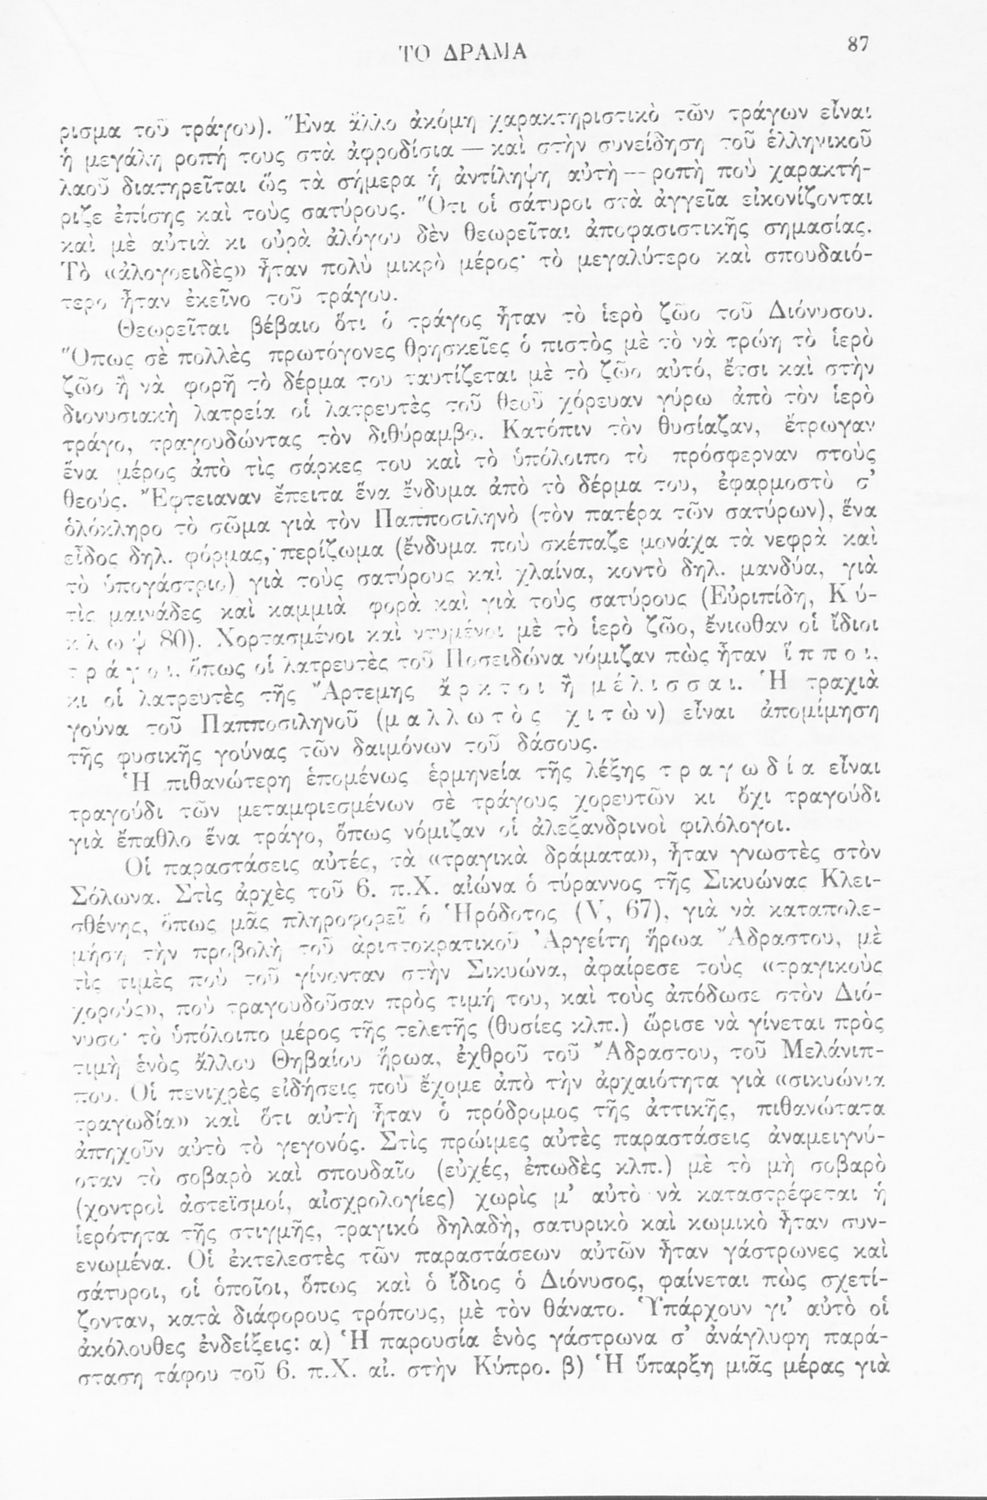 ΤΟ ΔΡΑΜΑ
87
ρισμα τοῦ τράγου). Ἕνα ἄλλο ἀκόμη χαρακτηριστικὸ τῶν τράγων εἶναι
ἡ μεγάλη ροπή τους στὰ ἀφροδίσια — καὶ στὴν συνείδηση τοῦ ἑλληνικοῦ
λαοῦ διατηρεῖται ὥς τὰ σήμερα ἡ ἀντίληψη αὐτὴ — ροπὴ ποὺ χαρακτή-
ριζε ἐπίσης καὶ τοὺς σατύρους. Ὅτι οἱ σάτυροι στὰ ἀγγεῖα εἰκονίζονται
καὶ μὲ αὐτιὰ κι οὐρὰ ἀλόγου δὲν θεωρεῖται ἀποφασιστικῆς σημασίας.
Τὸ «ἀλογοειδὲς» ἦταν πολὺ μικρὸ μέρος· τὸ μεγαλύτερο καὶ σπουδαιό-
τερο ἦταν ἐκεῖνο τοῦ τράγου.
Θεωρεῖται βέβαιο ὅτι ὁ τράγος ἦταν τὸ ἱερὸ ζῶο τοῦ Διόνυσου.
Ὅπως σὲ πολλὲς πρωτόγονες θρησκεῖες ὁ πιστὸς μὲ τὸ νὰ τρώη τὸ ἱερὸ
ζῶο ἢ νὰ φορῆ τὸ δέρμα του ταυτίζεται μὲ τὸ ζῶο αὐτό, ἔτσι καὶ στὴν
διονυσιακὴ λατρεία οἱ λατρευτὲς τοῦ θεοῦ χόρευαν γύρω ἀπὸ τὸν ἱερὸ
τράγο, τραγουδώντας τὸν διθύραμβο. Κατόπιν τὸν θυσίαζαν, ἔτρωγαν
ἕνα μέρος ἀπὸ τὶς σάρκες του καὶ τὸ ὑπόλοιπο τὸ πρόσφερναν στοὺς
θεούς. Ἔφτειαναν ἔπειτα ἕνα ἔνδυμα ἀπὸ τὸ δέρμα του, ἐφαρμοστὸ σ’
ὁλόκληρο τὸ σῶμα γιὰ τὸν Παπποσιληνὸ (τὸν πατέρα τῶν σατύρων), ἕνα
εἶδος δηλ. φόρμας, περίζωμα (ἔνδυμα ποὺ σκέπαζε μονάχα τὰ νεφρὰ καὶ
τὸ ὑπογάστριο) γιὰ τοὺς σατύρους καὶ χλαίνα, κοντὸ δηλ. μανδύα, γιὰ
τὶς μαινάδες καὶ καμμιὰ φορὰ καὶ γιὰ τοὺς σατύρους (Εὐριπίδη, Κ ύ-
κ λ ω ψ 80). Χορτασμένοι καὶ ντυμένοι μὲ τὸ ἱερὸ ζῶο, ἔνιωθαν οἱ ἴδιοι
τ ρ ά γ ο ι, ὅπως οἱ λατρευτὲς τοῦ Ποσειδώνα νόμιζαν πὼς ἦταν ἵ π π ο ι,
κι οἱ λατρευτὲς τῆς Ἄρτεμης ἄ ρ κ τ ο ι ἢ μ έ λ ι σ σ α ι. Ἡ τραχιὰ
γούνα τοῦ Παπποσιληνοῦ (μ α λ λ ω τ ὸ ς χ ι τ ὼ ν) εἶναι ἀπομίμηση
τῆς φυσικῆς γούνας τῶν δαιμόνων τοῦ δάσους.
Ἡ πιθανώτερη ἑπομένως ἑρμηνεία τῆς λέξης τ ρ α γ ω δ ί α εἶναι
τραγούδι τῶν μεταμφιεσμένων σὲ τράγους χορευτῶν κι ὄχι τραγούδι
γιὰ ἔπαθλο ἕνα τράγο, ὅπως νόμιζαν οἱ ἀλεξανδρινοὶ φιλόλογοι.
Οἱ παραστάσεις αὐτές, τὰ «τραγικὰ δράματα», ἦταν γνωστὲς στὸν
Σόλωνα. Στὶς ἀρχὲς τοῦ 6. π.Χ. αἰώνα ὁ τύραννος τῆς Σικυώνας Κλει-
σθένης, ὅπως μᾶς πληροφορεῖ ὁ Ἡρόδοτος (V, 67), γιὰ νὰ καταπολε-
μήση τὴν προβολὴ τοῦ ἀριστοκρατικοῦ Ἀργείτη ἥρωα Ἄδραστου, μὲ
τὶς τιμὲς ποὺ τοῦ γίνονταν στὴν Σικυώνα, ἀφαίρεσε τοὺς «τραγικοὺς
χορούς», ποὺ τραγουδοῦσαν πρὸς τιμή του, καὶ τοὺς ἀπόδωσε στὸν Διό-
νυσο· τὸ ὑπόλοιπο μέρος τῆς τελετῆς (θυσίες κλπ.) ὥρισε νὰ γίνεται πρὸς
τιμὴ ἑνὸς ἄλλου Θηβαίου ἥρωα, ἐχθροῦ τοῦ Ἄδραστου, τοῦ Μελάνιπ-
που. Οἱ πενιχρὲς εἰδήσεις ποὺ ἔχομε ἀπὸ τὴν ἀρχαιότητα γιὰ «σικυώνια
τραγωδία» καὶ ὅτι αὐτὴ ἦταν ὁ πρόδρομος τῆς ἀττικῆς, πιθανώτατα
ἀπηχοῦν αὐτὸ τὸ γεγονός. Στὶς πρώιμες αὐτὲς παραστάσεις ἀναμειγνύ-
οταν τὸ σοβαρὸ καὶ σπουδαῖο (εὐχές, ἐπωδὲς κλπ.) μὲ τὸ μὴ σοβαρὸ
(χοντροὶ ἀστεϊσμοί, αἰσχρολογίες) χωρὶς μ’ αὐτὸ νὰ καταστρέφεται ἡ
ἱερότητα τῆς στιγμῆς, τραγικό δηλαδὴ, σατυρικὸ καὶ κωμικὸ ἦταν συν-
ενωμένα. Οἱ ἐκτελεστὲς τῶν παραστάσεων αὐτῶν ἦταν γάστρωνες καὶ
σάτυροι, οἱ ὁποῖοι, ὅπως καὶ ὁ ἴδιος ὁ Διόνυσος, φαίνεται πὼς σχετί-
ζονταν, κατὰ διάφορους τρόπους, μὲ τὸν θάνατο. Ὑπάρχουν γι’ αὐτὸ οἱ
ἀκόλουθες ἐνδείξεις: α) Ἡ παρουσία ἑνὸς γάστρωνα σ’ ἀνάγλυφη παρά-
σταση τάφου τοῦ 6. π.Χ. αἰ. στὴν Κύπρο. β) Ἡ ὕπαρξη μιᾶς μέρας γιὰ